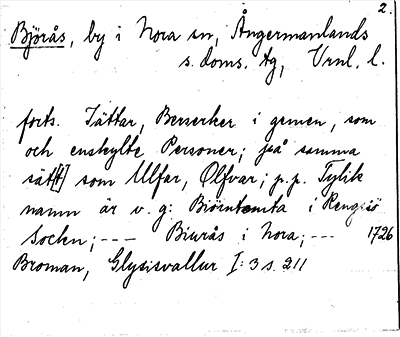 2.
Björås, by i Nora sn, Ångermanlands
s. doms. tg, Vrnl. l.
forts. Jättar, Berserker i gemen, som
och enskylte Personer; på samma
sät[t] som Ulfar, Olfvar; p.p. Tylik
namn är v. g: Biörntomta i Rengsiö
Socken; --- Biurås i Nora; --- 1726
Broman, Glysisvallur I: 3 s. 211